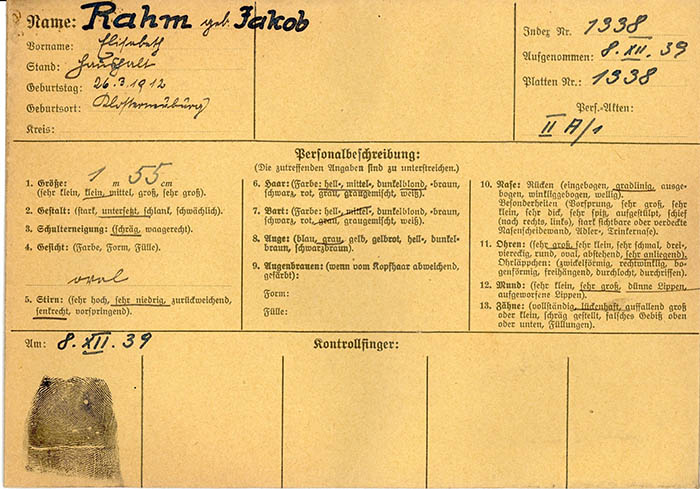 Name: Rahm geb. Jakob
Vorname: Elisabeth
Stand: Haushalt
Geburtstag: 26.3.1912
Geburtsort: Klosterneuburg
Kreis:
Index Nr. 1338
Aufgenommen: 8. XII. 39
Platten Nr.: 1338
Pers.-Akten:
II A/1
Personalbeschreibung:
(Die zutreffenden Angaben sind zu unterstreichen.)
1. Größe: 1 m 55 cm
(sehr klein, klein, mittel, groß, sehr groß).
2. Gestalt: (stark, untersetzt, schlank, schwächlich).
3. Schulterneigung: (schräg, waagerecht).
4. Gesicht: (Farbe, Form, Fülle).
oval
5. Stirn: (sehr hoch, sehr niedrig, zurückweichend,
senkrecht, vorspringend).
6. Haar: (Farbe: hell-, mittel-, dunkelblond, -braun,
schwarz, rot, grau, graugemischt, weiß).
7. Bart: (Farbe: hell-, mittel-, dunkelblond, -braun,
schwarz, rot, grau, graugemischt, weiß).
8. Auge: (blau, grau, gelb, gelbrot, hell-, dunkel-
braun, schwarzbraun).
9. Augenbrauen: (wenn vom Kopfhaar abweichend,
gefärbt):
Form:
Fülle:
10. Nase: Rücken (eingebogen, gradlinig, ausge-
bogen, winkliggebogen, wellig).
Besonderheiten (Vorsprung, sehr groß, sehr
klein, sehr dick, sehr spitz, aufgestülpt, schief
(nach rechts, links), stark sichtbare oder verdeckte
Nasenscheidewand, Adler-, Trinkernase).
11. Ohren: (sehr groß, sehr klein, sehr schmal, drei-
viereckig, rund, oval, abstehend, sehr anliegend).
Ohrläppchen: (zwickelförmig, rechtwinklig, bo-
genförmig, freihängend, durchlocht, durchrissen).
12. Mund: (sehr klein, sehr groß, dünne Lippen,
aufgeworfene Lippen).
13. Zähne: (vollständig, lückenhaft, auffallend groß
oder klein, schräg gestellt, falsches Gebiß oben
oder unten, Füllungen).
Am: 8. XII. 39
Kontrollfinger: